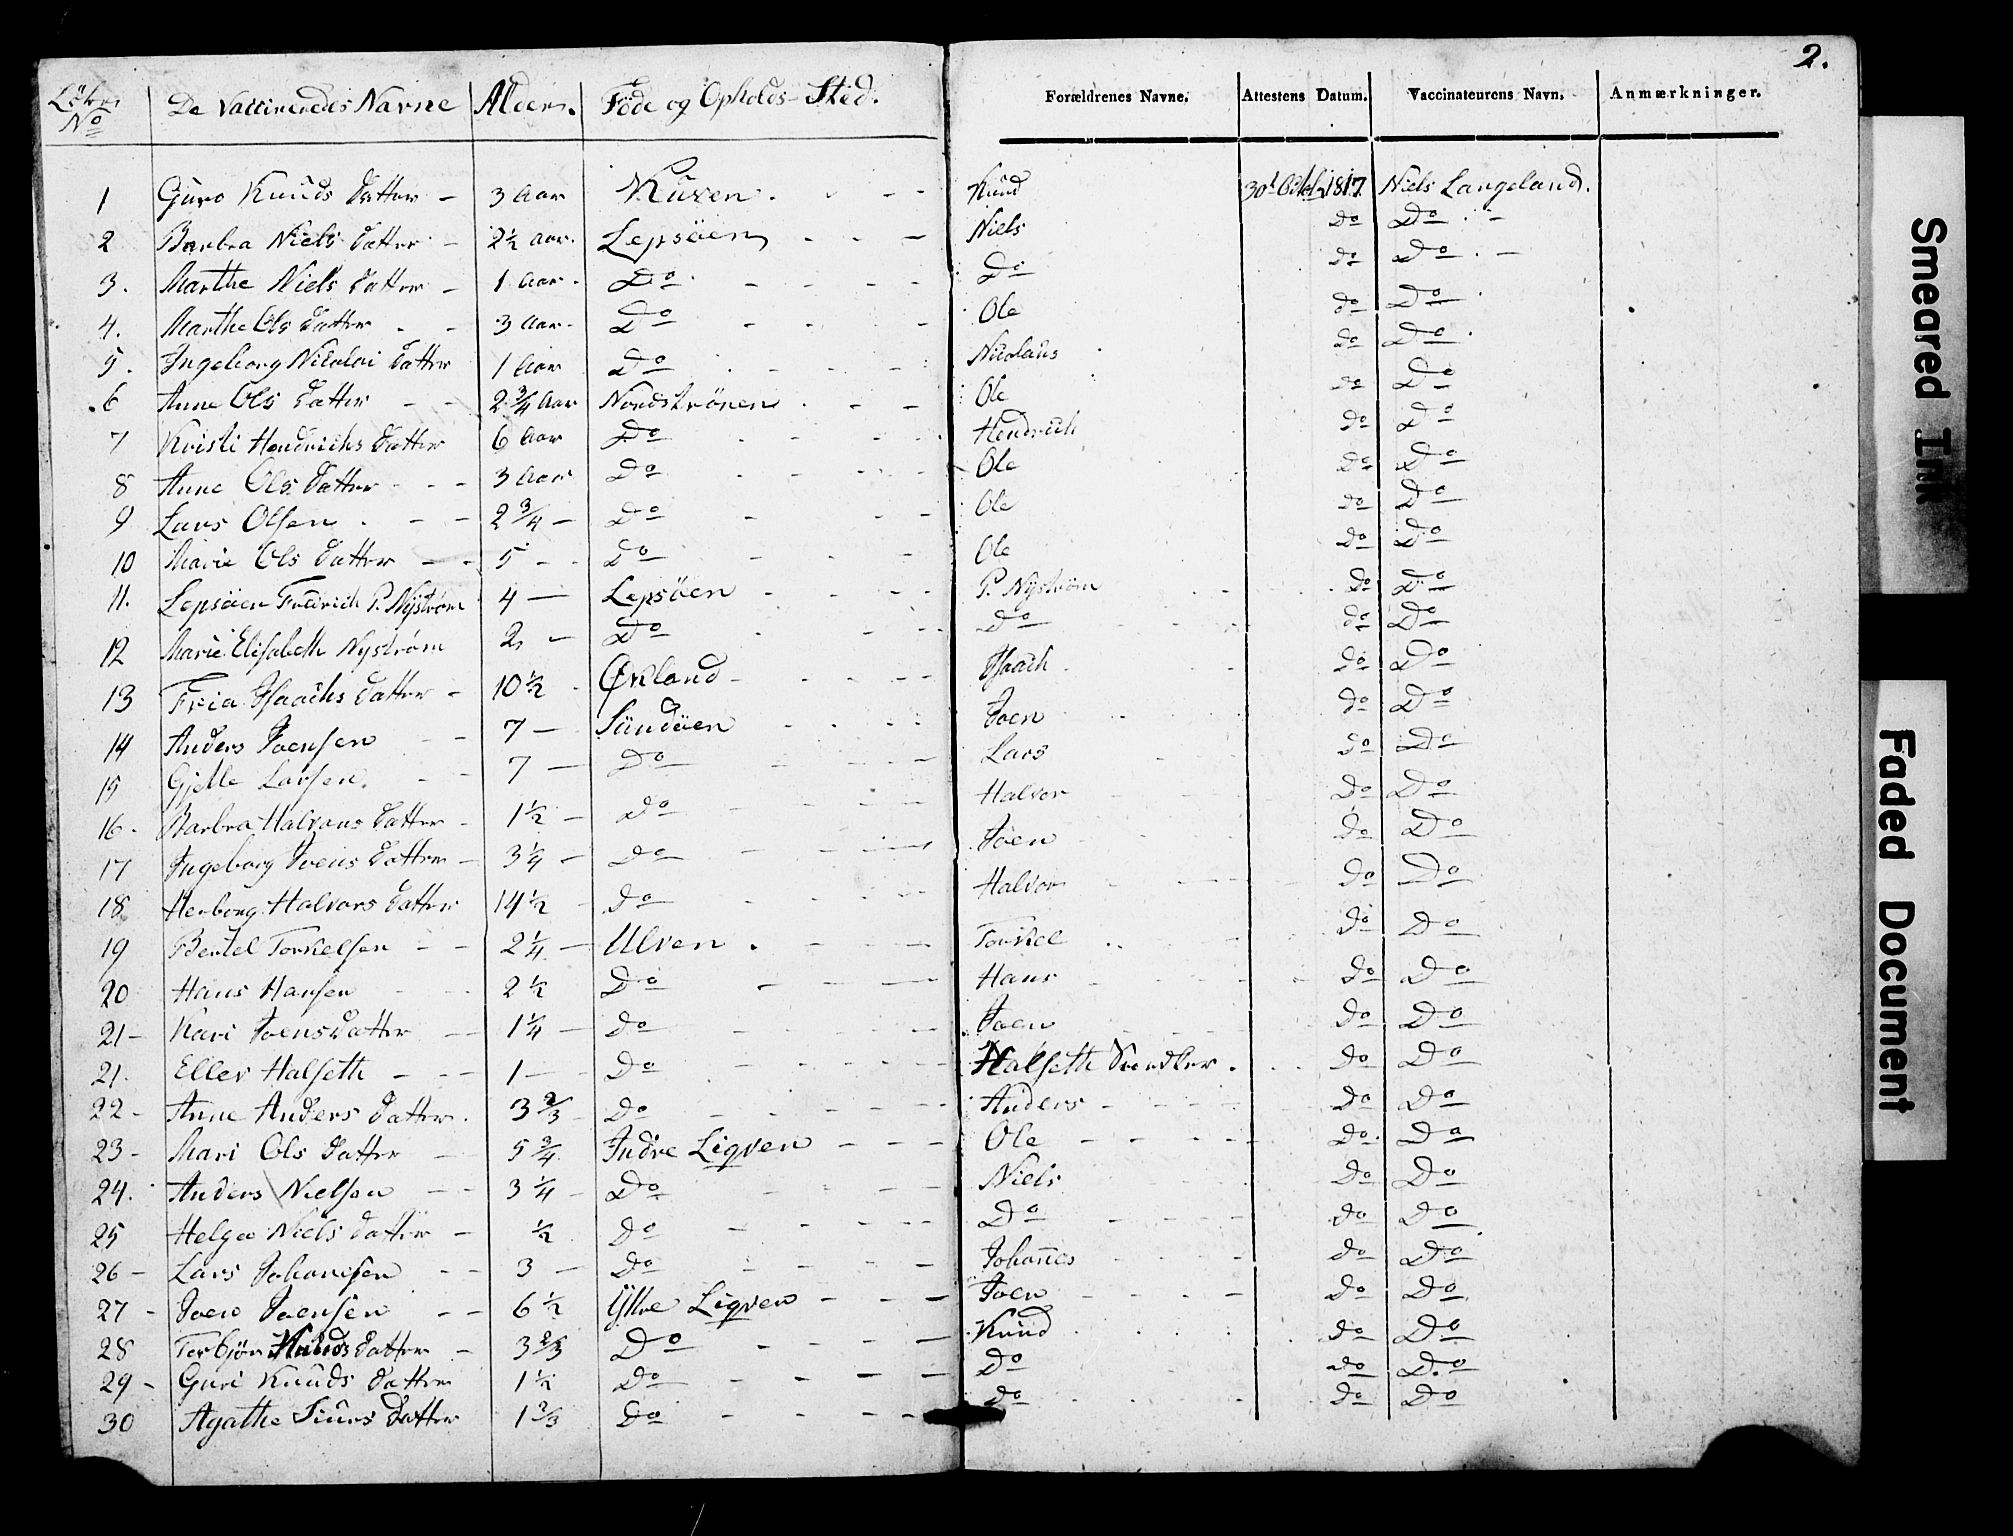 2.
Löbe No De Vaccineredes Navne Alder. Föde og Opholds-Sted. Forældrenes Navne. Attestens Datum. Vaccinateurens Navn. Anmærkninger.
1 Guro Knuds Datter - 3 Aar Kuven. - - Knud 30t Octobr 1817. Niels Langeland.
2 Barbra Niels Datter - 2½ Aar. Lepsöen - - - Niels Do Do
3. Marthe Niels Datter - 1 Aar. Do - - - - Do Do Do
4. Marthe Ols Datter - - 3 Aar. Do - - - Ole Do Do
5. Ingeborg Nicolai Datter 1 Aar Do - - - Nicolaus Do Do
6 Anne Ols Datter - - 2¾ Aar Nordströnen - - Ole Do Do
7 Kristi Hendrichs Datter 6 Aar Do - - - Hendrich Do Do
8 Anne Ols Datter - - 3 Aar Do - - - Ole Do Do
9 Lars Olsen - - 2¾ - Do - - - Ole Do Do
10 Marie Ols Datter - - 5 - - Do - - - Ole Do Do
11. Lepsöen Fredrich P. Nyström 4 - Lepsöen - - - P. Nyström Do Do
12 Marie Elisabeth Nyström 2 - Do - - Do Do Do
13 Isaachs Datter - 10½ - Økland - - - Isaach Do Do
14 Anders Joensen - - 7 - Sundöen - - - Joen Do Do
15 Gjelle Larsen. - - 7 - Do - - - Lars Do Do
16 - Barbra Halvors Datter - 1½ - Do - - - Halvor Do Do
17 Ingeborg Joens Datter - 3¼ - Do - - - Joen Do Do
18 Herborg Halvors Datter 14½ - Do - - - Halvor Do Do
19 Bertel Torkelsen - - 2¼ - Ulven. - - - Torkel Do Do
20 Hans Hansen - - 2½ Do - - - Hans Do Do
21 - Kari Joens Datter - - 1¼ - Do - - - Joen Do Do
21. Eller Halseth - - - 1 - - Do - - - Halseth Do Do
22 - Anne Anders Datter. 3⅔ - Do - - - Anders - - Do Do
23 - Mari Ols Datter - 5¾ Indre Liqven - - - Ole - - - Do Do
24. Anders Nielsen - - 3¼ - Do - - - Niels Do Do
25 Helga Niels Datter - ½ Do - - - Do - - - Do Do
26 - Lars Johannesen - - 3 - Do - - - Johannes Do Do
27 - Joen Joensen - - 6½ Yttre Liqven - - - Joen - - Do Do
28 Torbjör Knuds Datter - 3⅔ Do - - - Knud Do Do
29 - Guri Knuds Datter 1½ Do - - - Do Do Do
30 Agathe Siurs Datter 1⅔ Do - - - Do Do Do
Smeared Ink
Faded Document